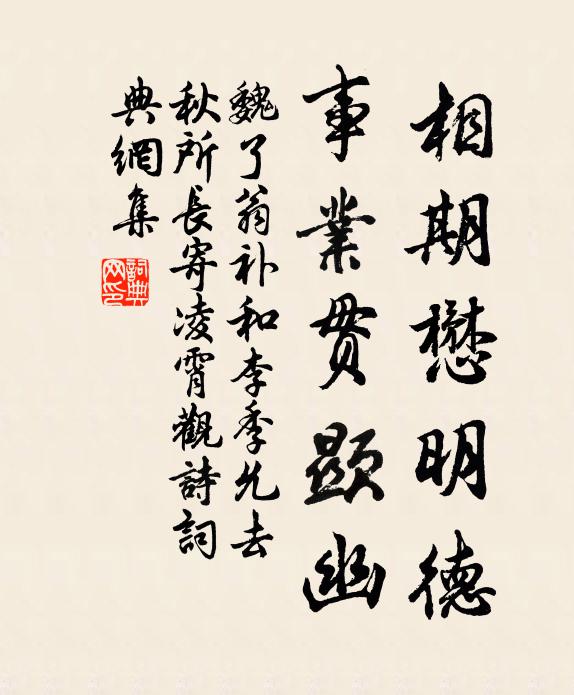 相期懋明德
事業貫顯幽
魏了翁补和李季允去
秋所長寄凌霄觀詩詞
典網集
詞典
网印